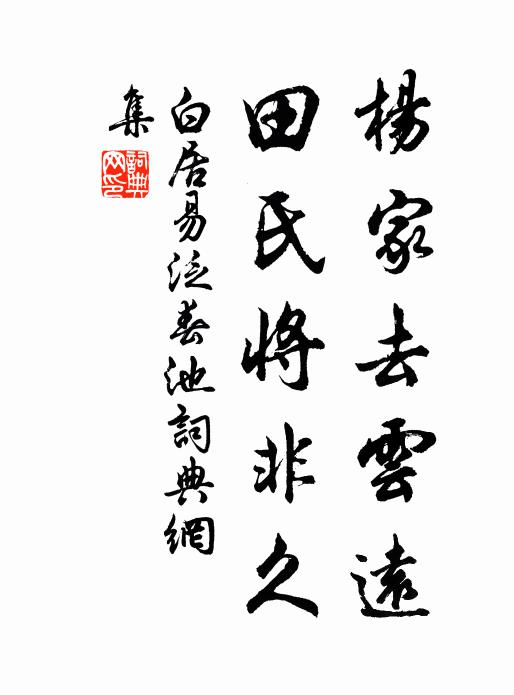 楊家去雲遠
田氏將非久
白居易泛春池詞典網
集
詞典
网印